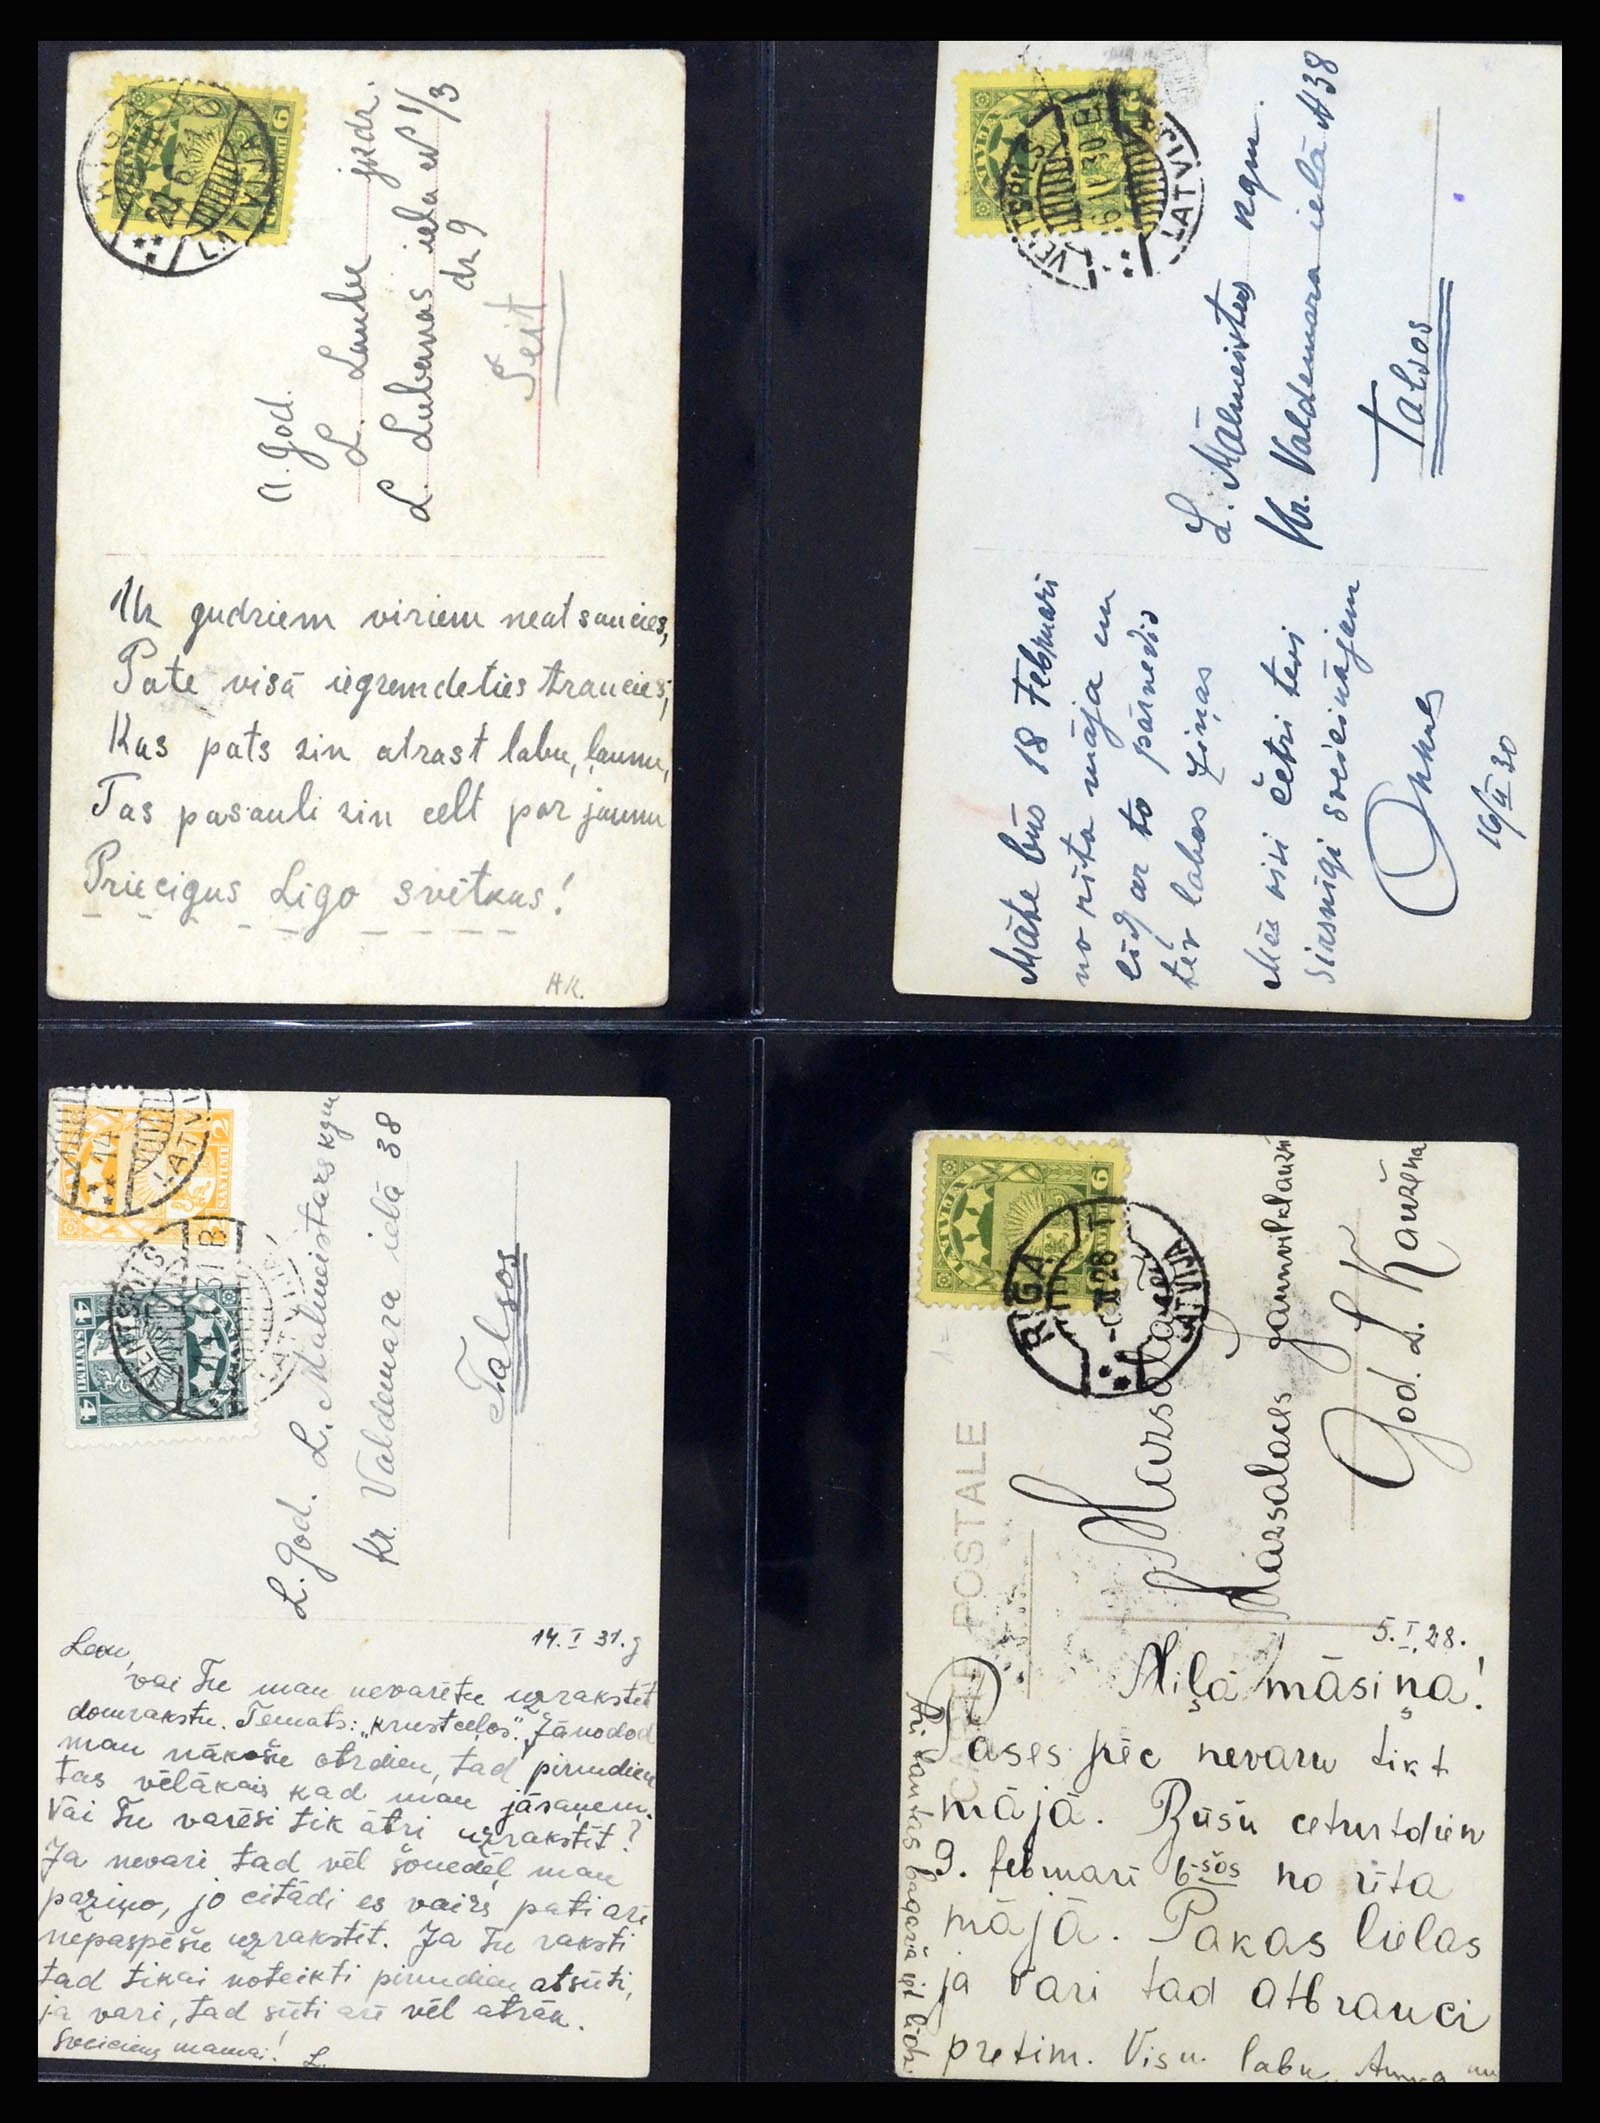 LATVIJA
6
22 6 31
LATVIJA
A. god.
L. Laube jkdr.
L. Lubanas iela N 1/3
dz 9
Šeit
Uz gudriem viriem neatsaucies,
Pate visā iegremdeties traucies;
Kas pats zin atrast labu, ļaunu,
Tas pasauli zin celt par jaunu
Priecigus Līgo svētkus!
AK.
VENTSPILS
LATVIJA
L. Mālmeistas kgm.
Kr. Valdemara ielā N 38
Talsos
Māte būs 18 Februari
no rīta māja un
līdz ar to pārnedīs
tev labas ziņas
Mēs visi četri tevi
sirsnīgi sveicinājam
16/II 30
2
SANTIMI
LATVI
4
SANTIMI
4
VENTSPILS
L. god. L. Malmeistars kgm
Kr. Valdemara ielā 38
Talsos
14. I 31. g
vai Tu man nevarētu uzrakstīt
domrakstu. Temats: „Krustceļos". Jānodod
man nākošu otrdien, tad pirmdien
tas vēlākais kad man jāsaņem.
Vai Tu varēsi tik ātri uzrakstīt?
Ja nevari tad vēl šonedēļ man
paziņo, jo citādi es vairs pati arī
nepaspēšu uzrakstīt. Ja Tu raksti
tad tikai noteikti pirmdien atsūti,
ja vari, tad sūti arī vēl atrāk.
Sveicieng mamai! L.
LATVIJA
6
RIGA
28
LATVIJA
CARTE POSTALE
Mazsalacā
Mazsalacas
God. L. Kauzena
5. I. 28.
Miļā māsiņa!
Pases pēc nevaru tikt
mājā. Būšu ceturtdien
9. februarī 6-šos no rīta
mājā. Pakas lielas
ja vari tad atbrauci
pretim. Visu labu Anna